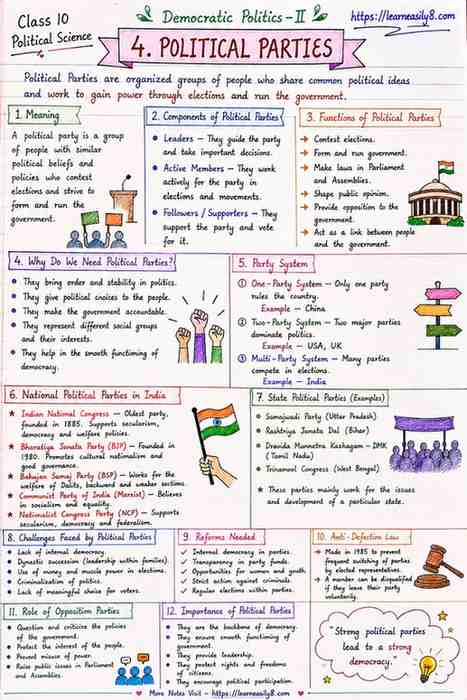 Class 10
Political Science
Democratic Politics - II
https://learneasily8.com
4. POLITICAL PARTIES
Political Parties are organized groups of people who share common political ideas
and work to gain power through elections and run the government.
1. Meaning
A political party is a group
of people with similar
political beliefs and
policies who contest
elections and strive to
form and run the
government.
2. Components of Political Parties
Leaders – They guide the party
and take important decisions.
Active Members – They work
actively for the party in
elections and movements.
Followers / Supporters – They
support the party and vote
for it.
3. Functions of Political Parties
Contest elections.
Form and run government.
Make laws in Parliament
and Assemblies.
Shape public opinion.
Provide opposition to the
government.
Act as a link between people
and the government.
4. Why Do We Need Political Parties?
They bring order and stability in politics.
They give political choices to the people.
They make the government accountable.
They represent different social groups
and their interests.
They help in the smooth functioning of
democracy.
5. Party System
① One-Party System – Only one party
rules the country.
Example – China
② Two-Party System – Two major parties
dominate politics.
Example – USA, UK
③ Multi-Party System – Many parties
compete in elections.
Example – India
6. National Political Parties in India
Indian National Congress – Oldest party,
founded in 1885. Supports secularism,
democracy and welfare policies.
Bharatiya Janata Party (BJP) – Founded in
1980. Promotes cultural nationalism and
good governance.
Bahujan Samaj Party (BSP) – Works for the
welfare of Dalits, backward and weaker sections.
Communist Party of India (Marxist) – Believes
in socialism and equality.
Nationalist Congress Party (NCP) – Supports
secularism, democracy and federalism.
7. State Political Parties (Examples)
Samajwadi Party (Uttar Pradesh)
Rashtriya Janata Dal (Bihar)
Dravida Munnetra Kazhagam – DMK
(Tamil Nadu)
Trinamool Congress (West Bengal)
These parties mainly work for the issues
and development of a particular state.
8. Challenges Faced by Political Parties
Lack of internal democracy.
Dynastic succession (leadership within families).
Use of money and muscle power in elections.
Criminalization of politics.
Lack of meaningful choice for voters.
9. Reforms Needed
Internal democracy in parties.
Transparency in party funds.
Opportunities for women and youth.
Strict action against criminals.
Regular elections within parties.
10. Anti-Defection Law
Made in 1985 to prevent
frequent switching of parties
by elected representatives.
A member can be disqualified
if they leave their party
voluntarily.
11. Role of Opposition Parties
Question and criticize the policies
of the government.
Protect the interest of the people.
Prevent misuse of power.
Raise public issues in Parliament
and Assemblies.
12. Importance of Political Parties
They are the backbone of democracy.
They ensure smooth functioning of
government.
They provide leadership.
They protect rights and freedoms
of citizens.
They encourage political participation.
"Strong political parties
lead to a strong
democracy."
More Notes Visit - https://learneasily8.com